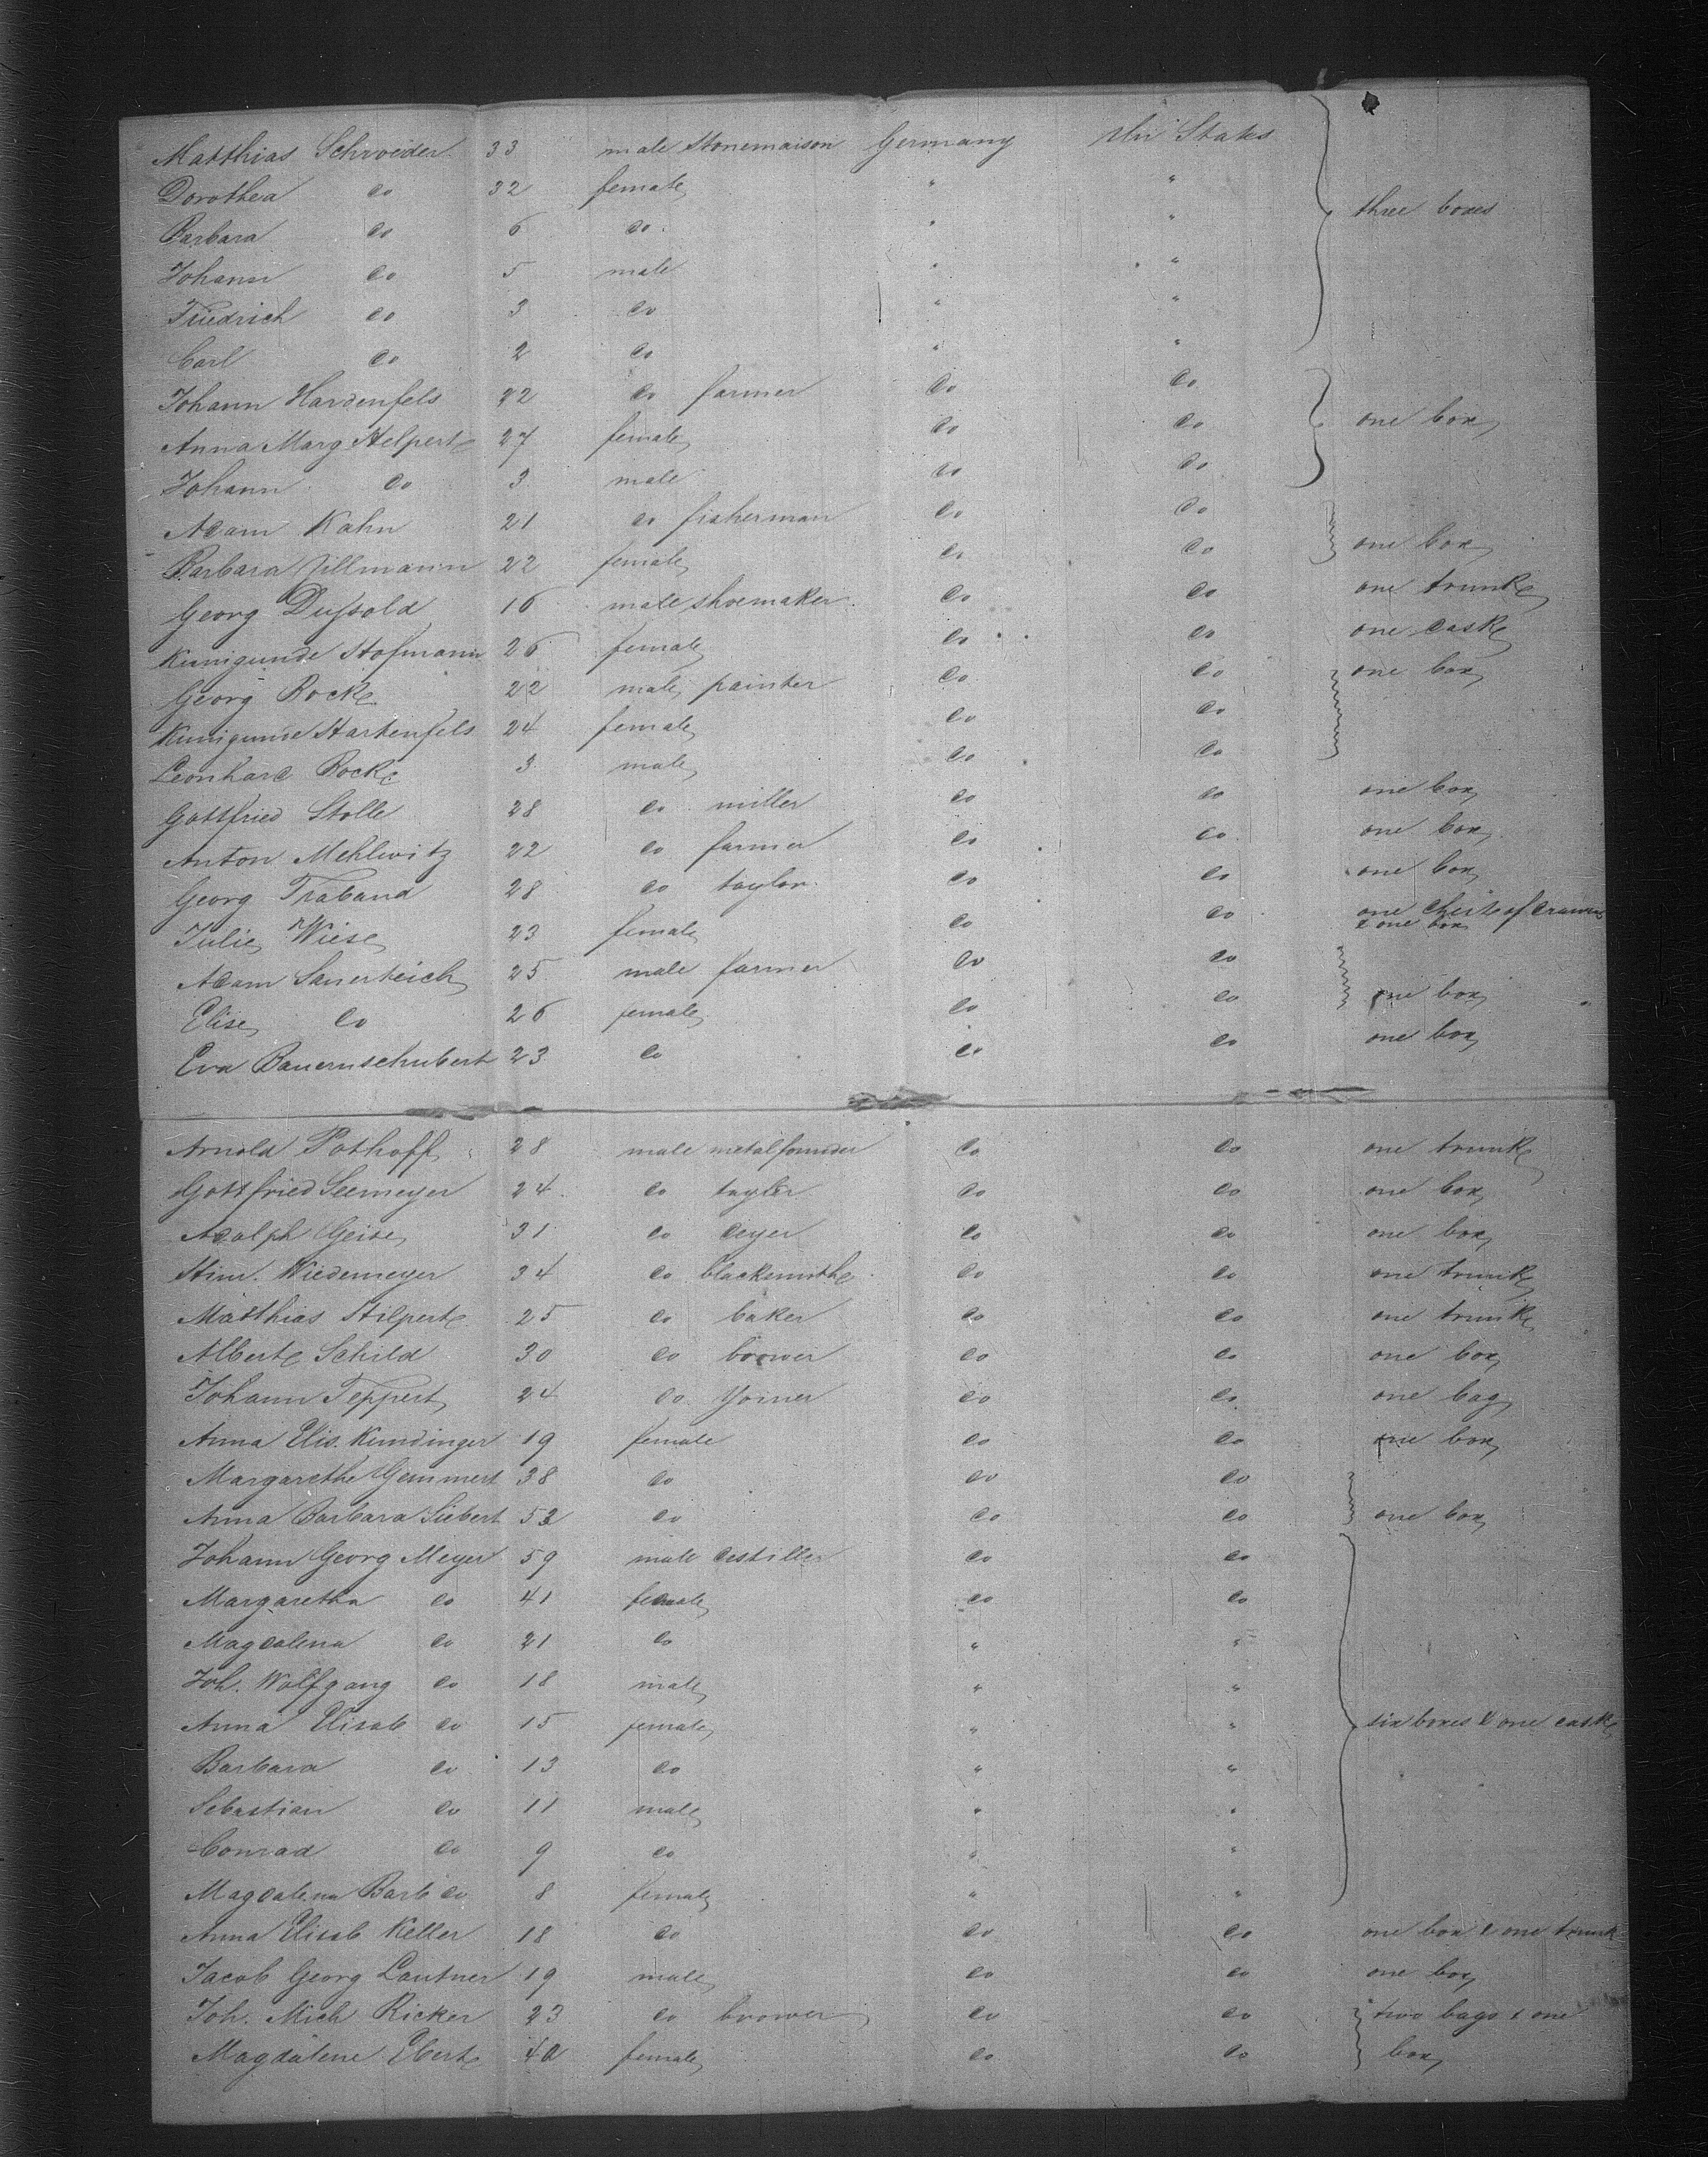 Matthias Schroeider 33 male Stonemaison Germany Uni States
Dorothea do 32 female " "
Barbara do 6 do " " three boxes
Johann do 5 male " "
Friedrich do 3 do " "
Carl do 2 do " "
Johann Hardenfels 22 do farmer do do
Anna Marg Helpert 27 female do do one box
Johann do 3 male do do
Adam Kahn 21 do fisherman do do
Barbara Ullmann 22 female do do one box
Georg Dußold 16 male shoemaker do do one trunk
Kunigunde Hofmann 26 female do do one cask
Georg Rock 22 male painter do do one box
Kunigunde Hartenfels 24 female do do
Leonhard Rock 3 male do do
Gottfried Stolle 28 do miller do do one box
Anton Mehlwitz 22 do farmer do do one box
Georg Traband 28 do taylor do do one box
Julie Wiese 23 female do do one chest of drawers
& one box
Adam Sauerteich 25 male farmer do do
Elise do 26 female do do one box
Eva Bauernschubert 23 do do do one box
Arnold Pothoff 28 male metalfounder do do one trunk
Gottfried Seemeyer 24 do taylor do do one box
Adolph Geise 31 do deyer do do one box
Wiedemeyer 34 do blacksmith do do one trunk
Matthias Hilpert 25 do baker do do one trunk
Albert Schild 30 do brower do do one box
Johann Teppert 24 do Yoiner do do one bag
Anna Elis. Kundinger 19 female do do one box
Margarethe Gemmert 38 do do do
Anna Barbara Siebert 52 do do do one box
Johann Georg Meyer 59 male destiller do do
Margaretha do 41 female do do
Magdalena do 21 do " "
Joh. Wolfgang do 18 male " "
Anna Elisab do 15 female " " six boxes & one cask
Barbara do 13 do " "
Sebastian do 11 male " "
Conrad do 9 do " "
Magdalena Barb do 8 female " "
Anna Elisab Keller 18 do do do one box & one trunk
Jacob Georg Lautner 19 male do do one box
Joh. Mich Ricker 23 do brower do do two bags & one
Magdalene Ebert 40 female do do box